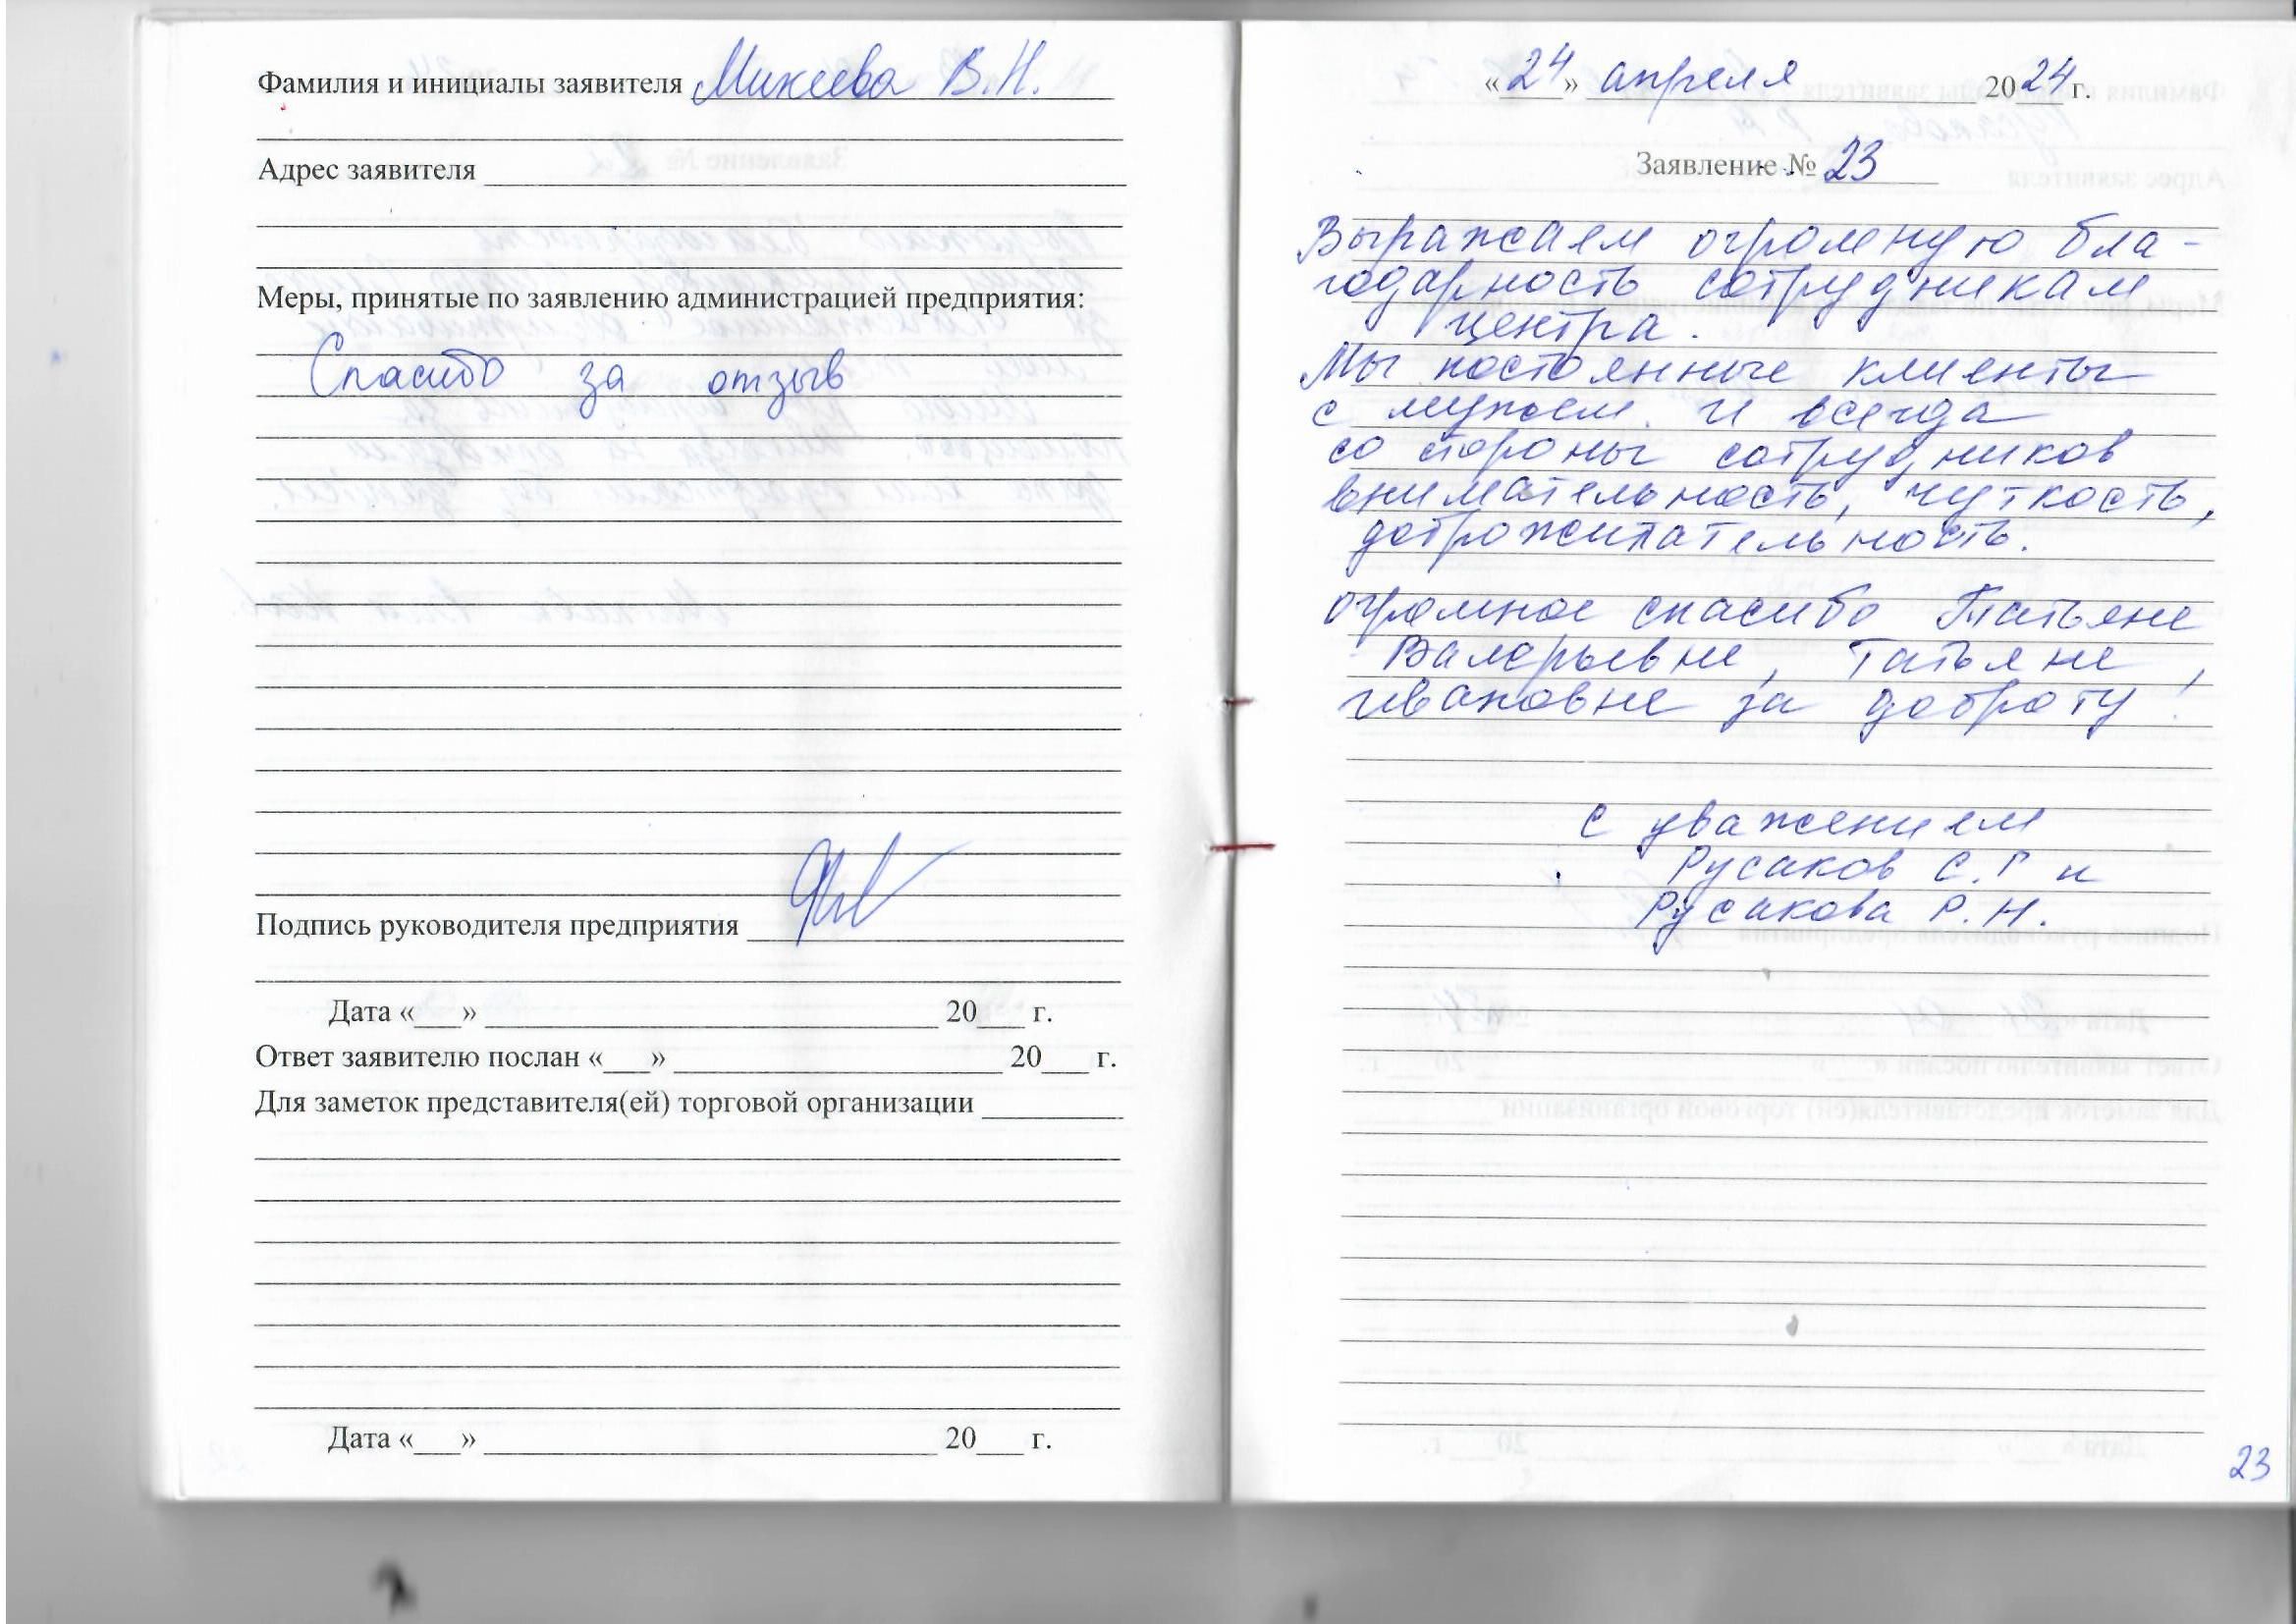 Фамилия и инициалы заявителя Михеева В.Н.
Адрес заявителя
Меры, принятые по заявлению администрацией предприятия:
Спасибо за отзыв
Подпись руководителя предприятия
Дата «___» 20___ г.
Ответ заявителю послан «___» 20___ г.
Для заметок представителя(ей) торговой организации
Дата «___» 20___ г.
«24» апреля 2024 г.
Заявление № 23
Выражаем огромную бла-
годарность сотрудникам
центра.
Мы постоянные клиенты
с мужем. И всегда
со стороны сотрудников
внимательность, чуткость,
доброжилательность.
огромное спасибо Татьяне
Валерьевне, Татьяне
Ивановне за доброту!
С уважением
Русаков С.Г и
Русакова Р.Н.
23